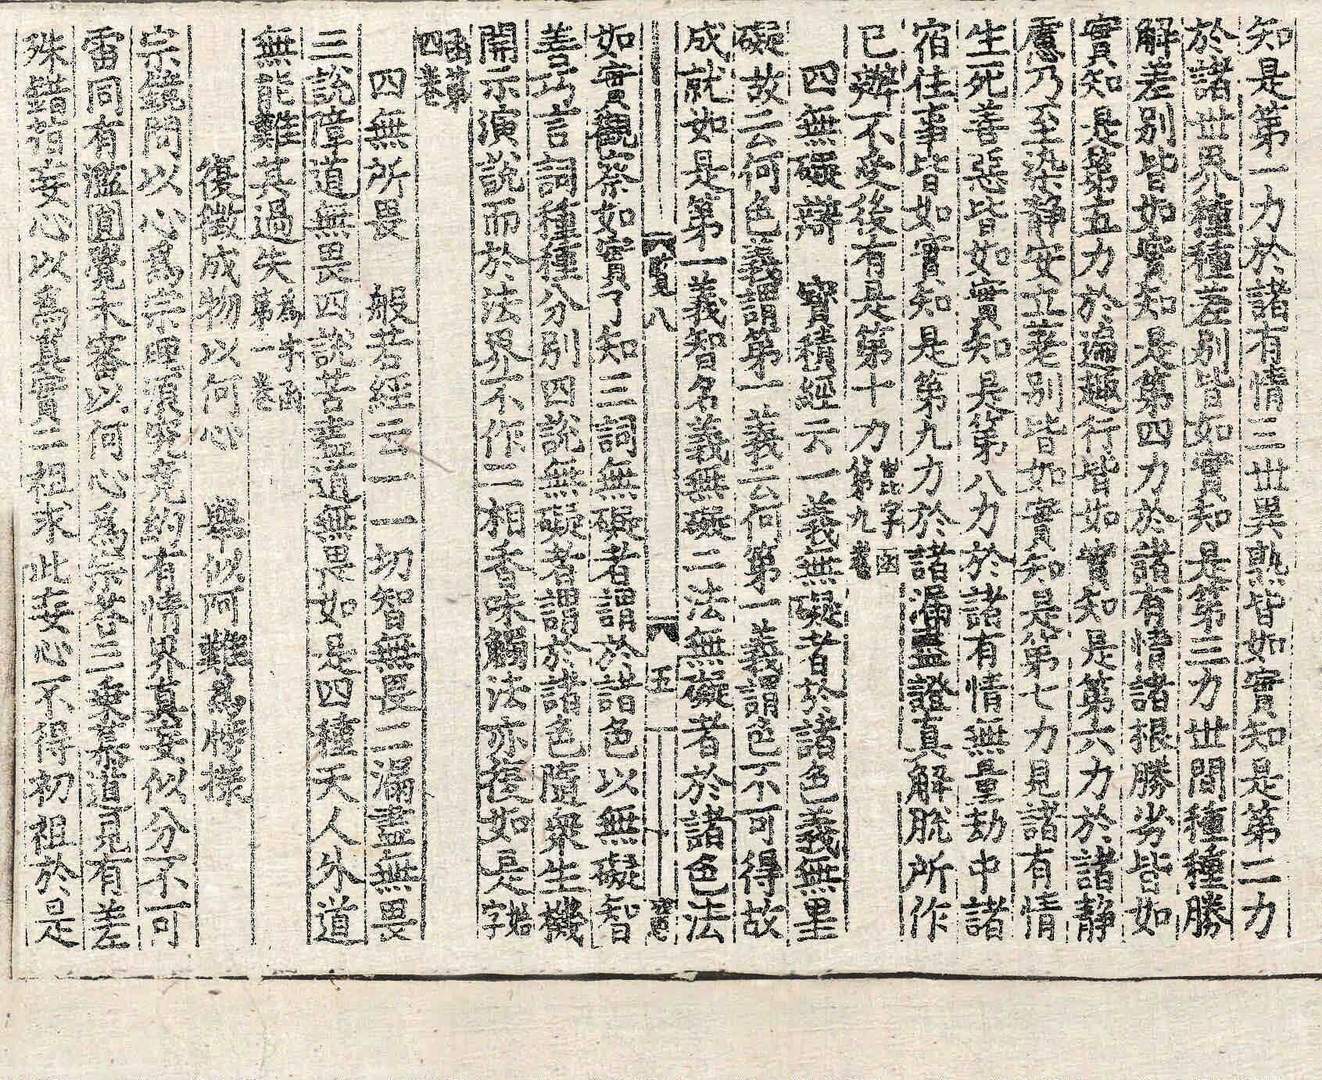 知是第一力於諸有情三世異熟皆如實知是第二力
於諸世界種種差別皆如實知是第三力世間種種勝
解差別皆如實知是第四力於諸有情諸根勝劣皆如
實知是第五力於遍趣行皆如實知是第六力於諸靜
慮乃至染靜安立差別皆如實知是第七力見諸有情
生死善惡皆如實知是第八力於諸有情無量劫中諸
宿住事皆如實知是第九力於諸漏盡證真解脫所作
已辦不受後有是第十力
字函
第九卷
四無礙辯 寶積經云一義無礙者於諸色義無里
礙故云何色義謂第一義云何第一義謂色不可得故
成就如是第一義智名義無礙二法無礙者於諸色法
八
五
如實觀察如實了知三詞無礙者謂於諸色以無礙智
善巧言詞種種分別四說無礙者謂於諸色隨衆生機
開示演說而於法界不作二相香味觸法亦復如是
始
字
函第
四卷
四無所畏 般若經云一一切智無畏二漏盡無畏
三說障道無畏四說苦盡道無畏如是四種天人外道
無能難其過失
函
第一卷
復徵成物以何心 舉似阿難為牓樣
宗鏡問以心為宗禪源究竟約有情界真妄似分不可
雷同有濫圓覺未審以何心為宗答三乘慕道見有差
殊錯指妄心以為真實二祖求此妄心不得初祖於是